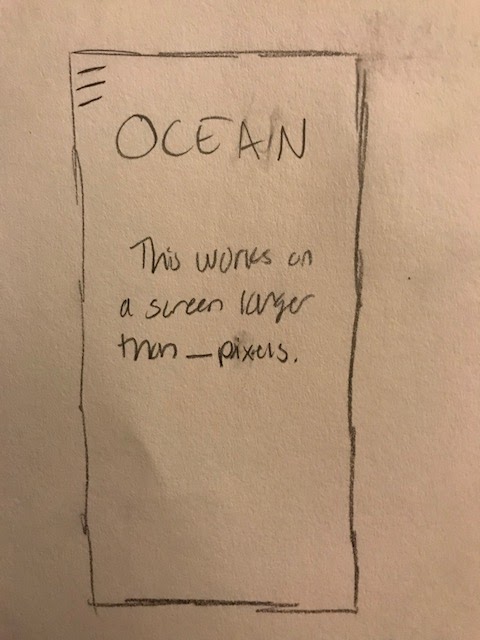 OCEAN
This works on
a screen larger
than _ pixels.